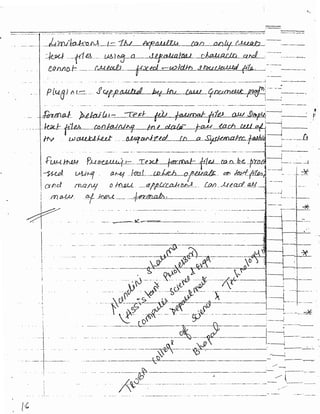 Limitations :- The Apparatus can only create
text files using a separator character and
cannot create fixed-width structured file.
Plugin :- Supported by the core Pneumatic prog
Format Details :- Text file format files are Simple
text files containing the data from each cell of
the worksheet organised in a Systematic fashion
Further Process :- Text format files can be proce-
-ssed using any tool which operates on text files,
and many other applications can read all
many of these formats.
K
Nandini Sharma
(Assistant Professor)
Computer Science & Engg
Department
TRUBA College of Science & Technology
Bhopal
16